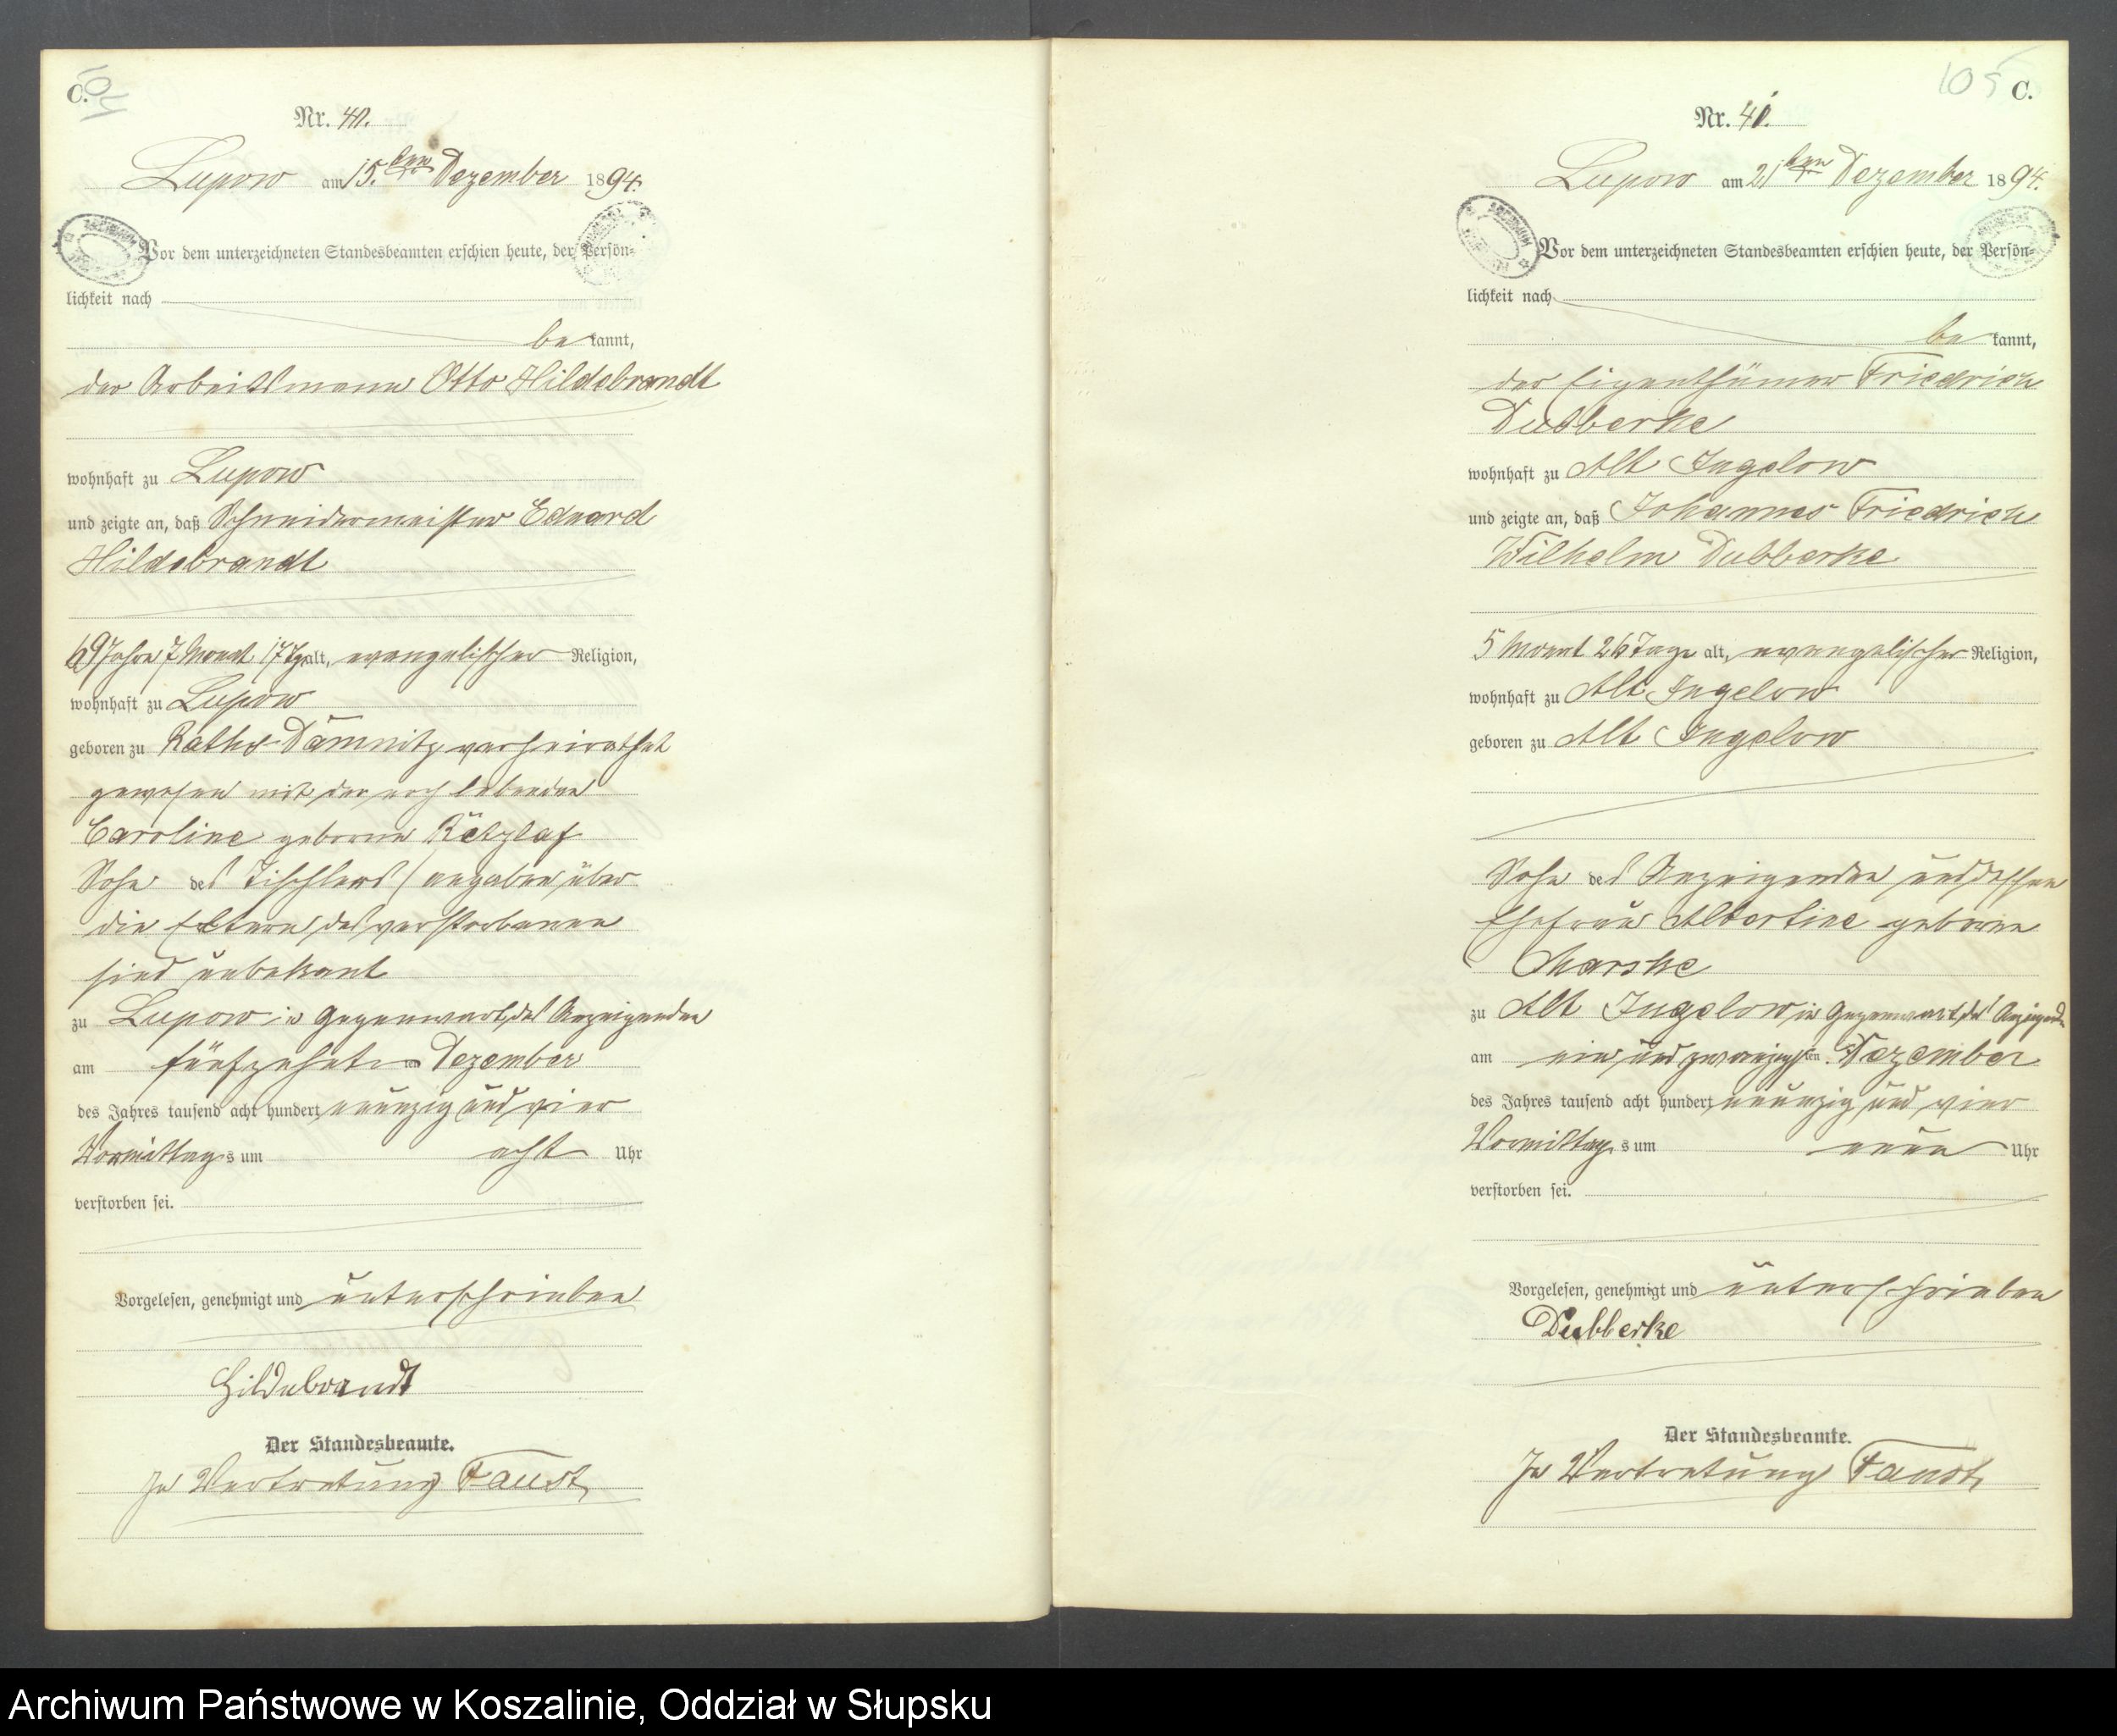 C.
104
Nr. 40.
Lupow am 15.ten Dezember 1894.
Vor dem unterzeichneten Standesbeamten erschien heute, der Persön-
lichkeit nach
be kannt,
der Arbeitsmann Otto Hildebrandt
wohnhaft zu Lupow
und zeigte an, daß Schneidermeister Eduard
Hildebrandt
69 Jahre 7 Monat 17 Tg alt, evangelischer Religion,
wohnhaft zu Lupow
geboren zu Raths-Damnitz verheirathet
gewesen mit der noch lebenden
Caroline geborne Rëtzlaf
Sohn des Tischlers / angaben über
die Eltern des verstorbenen
sind unbekant
zu Lupow in Gegenwart des Anzeigenden
am fünfzehnten Dezember
des Jahres tausend acht hundert neunzig und vier
Vormittags um acht Uhr
verstorben sei.
Vorgelesen, genehmigt und unterschrieben
Hildebrandt
Der Standesbeamte.
In Vertretung Faust
105 C.
Nr. 41.
Lupow am 21ten Dezember 1894.
Vor dem unterzeichneten Standesbeamten erschien heute, der Persön-
lichkeit nach
be kannt,
der Eigenthümer Friedrich
Dubberke
wohnhaft zu Alt Jugelow
und zeigte an, daß Johannes Friedrich
Wilhelm Dubberke
5 Monat 26 Tage alt, evangelischer Religion,
wohnhaft zu Alt Jugelow
geboren zu Alt Jugelow
Sohn des Anzeigenden und dessen
Ehefrau Albertine geborne
Marske
zu Alt Jugelow in Gegenwart des Anzeigenden
am ein und zwanzigsten Dezember
des Jahres tausend acht hundert neunzig und vier
Vormittags um neun Uhr
verstorben sei.
Vorgelesen, genehmigt und unterschrieben
Dubberke
Der Standesbeamte.
In Vertretung Faust
Archiwum Państwowe w Koszalinie, Oddział w Słupsku